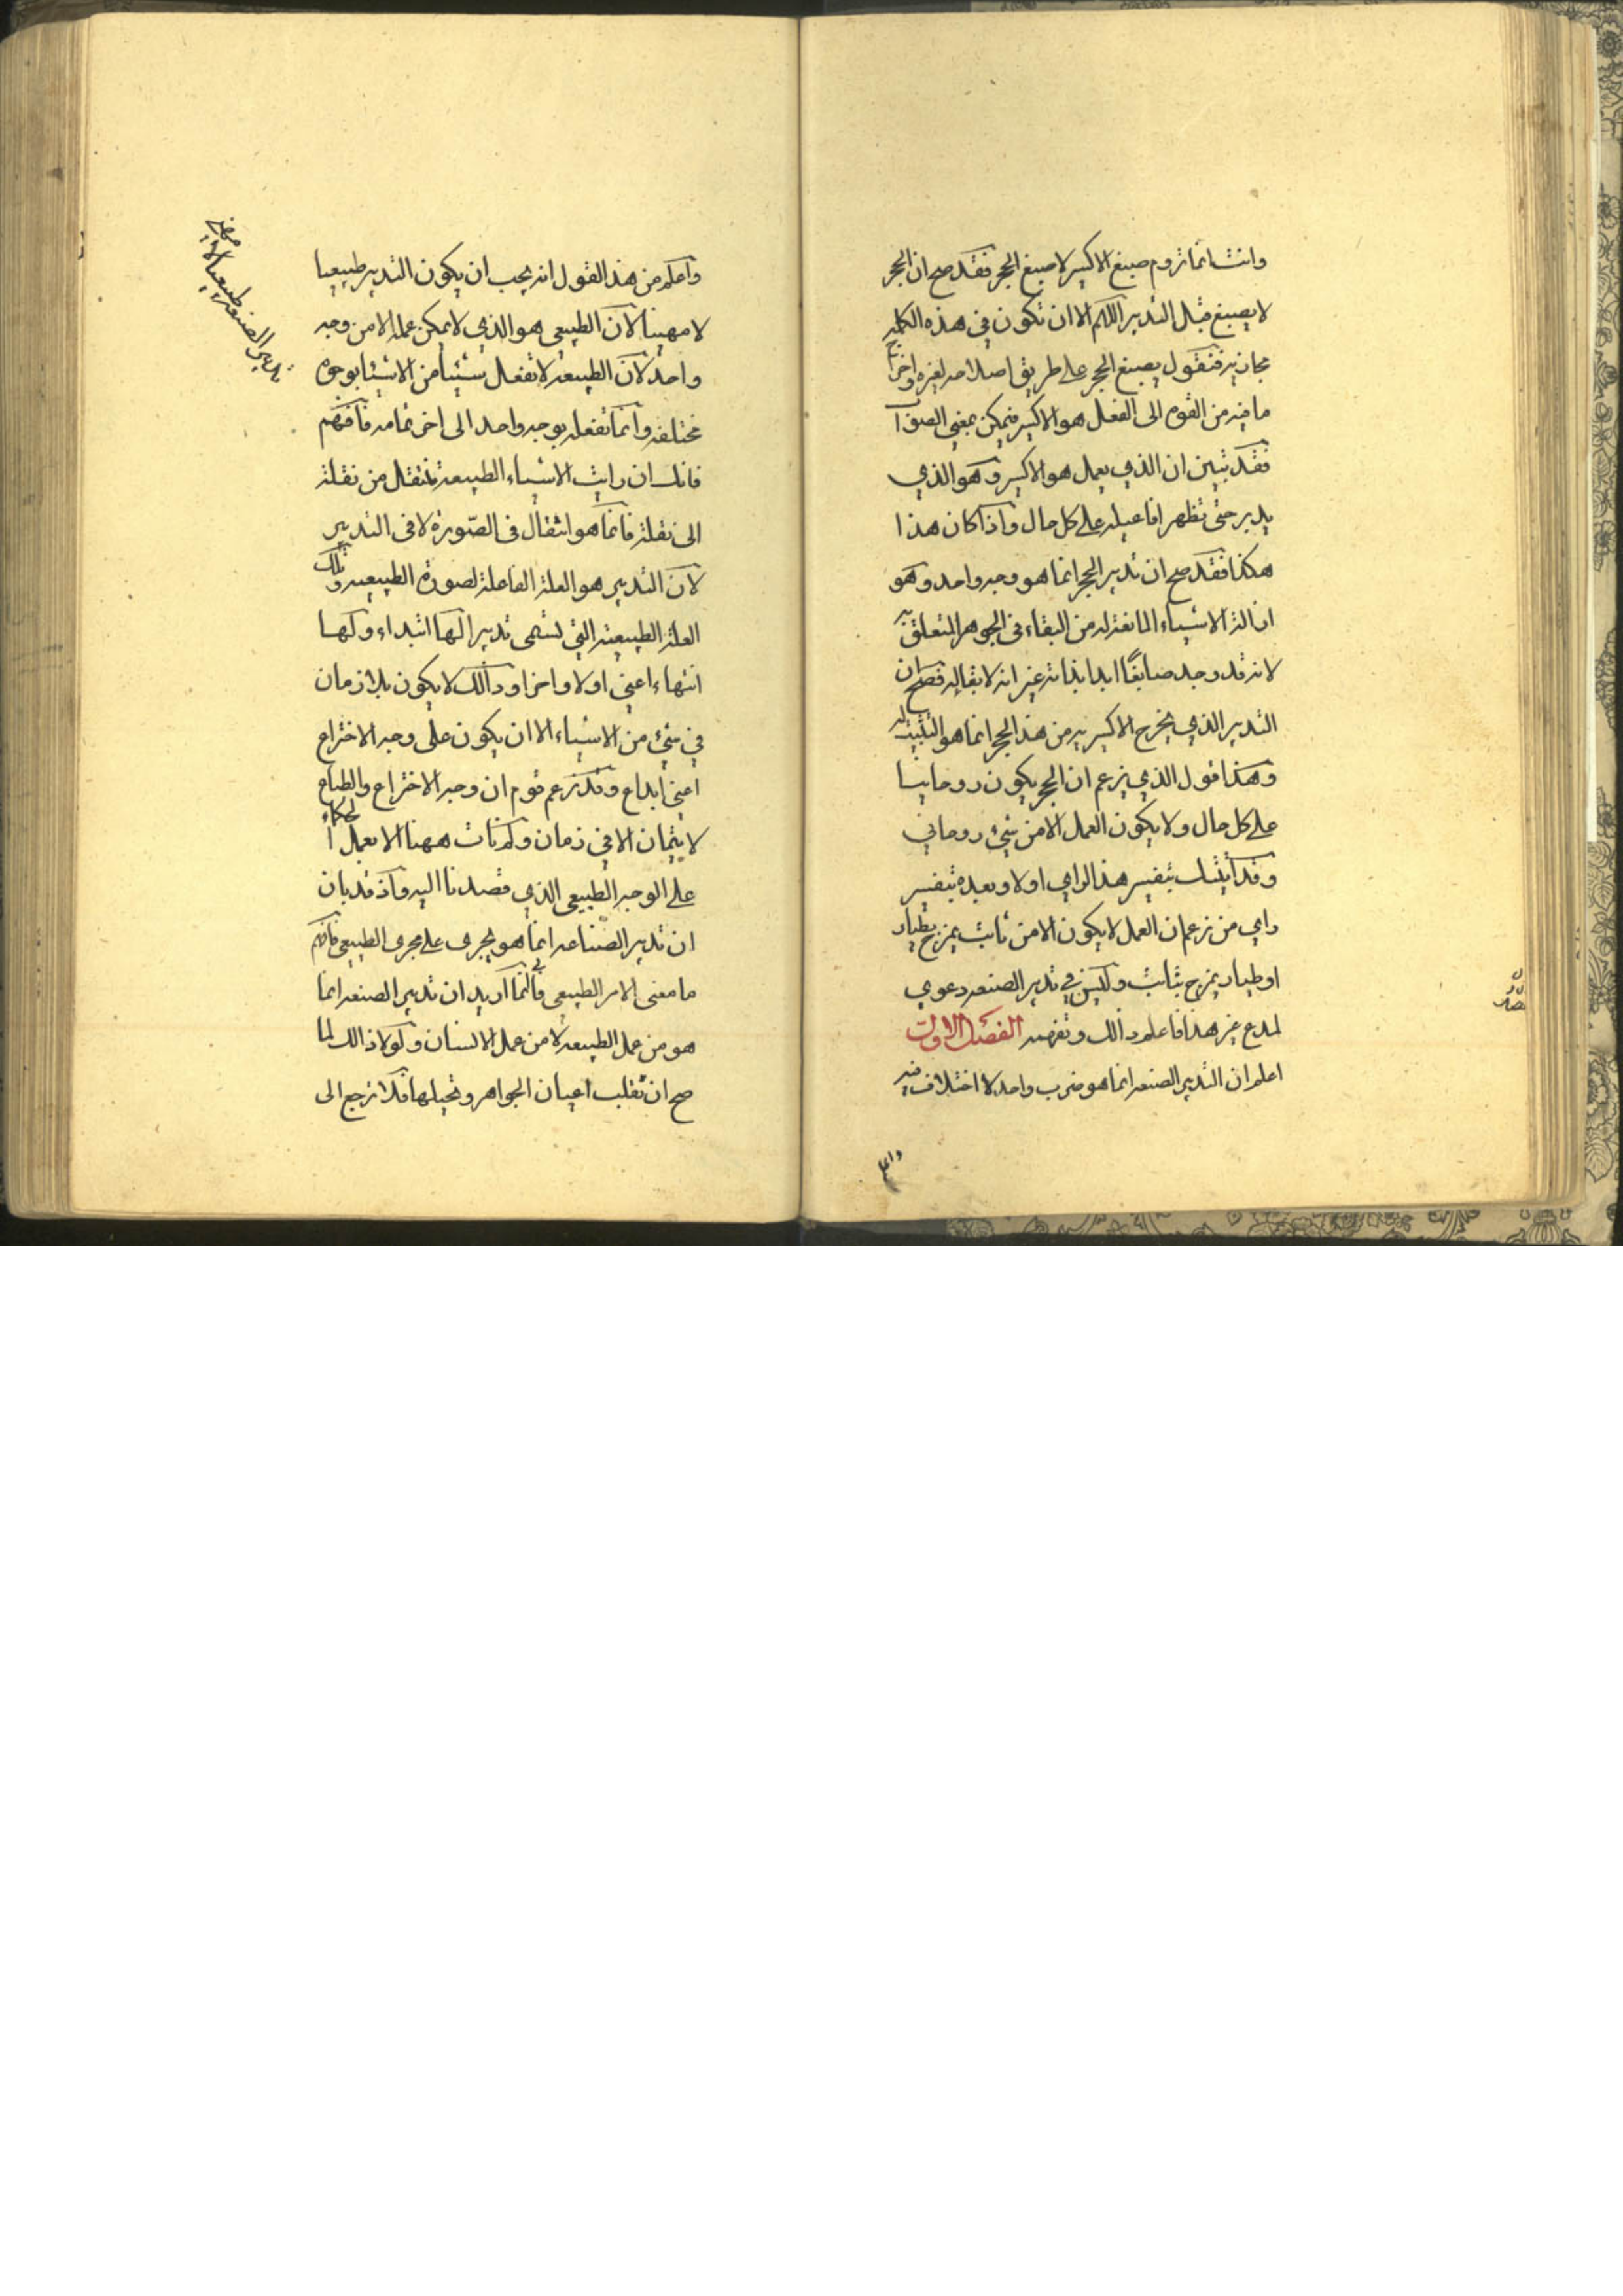 وانت انما تروم صبغ الاكسير لا صبغ الحجر فقد صح ان الحجر
لا يصبغ قبل التدبير اللهم الا ان تكون في هذه الكلمه
مجازيه فنقول يصبغ الحجر على طريق اصلاحه لغيره واخراج
ما فيه من القوه الى الفعل هو الاكسير فيمكن بمعنى
فقد تبين ان الذي يعمل هو الاكسير وهو الذي
يدبر حتى تظهر افاعيله على كل حال واذا كان هذا
هكذا فقد صح ان تدبير الحجر انما هو وجه واحد وهو
ازالة الاشياء المانعة له من البقاء في الجوهر المتعلق به
لانه قد وجد صابغًا ابدا بذاته غير انه لا بقا له فصح ان
التدبير الذي يخرج الاكسير به من هذا الحجر انما هو التثبيت له
وهذا قول الذي يزعم ان الحجر يكون روحانيا
على كل حال ولا يكون العمل الا من شئ روحاني
وقد أتيتك بتفسير هذا الراي اولا وبعده بتفسير
راي من زعم ان العمل لا يكون الا من ثابت يمزج بطيار
او طيار يمزج بثابت وليس في تدبير الصنعه دعوي
لمدع غير هذا فاعلم ذالك وتفهمه الفصل الاول
اعلم ان التدبير الصنعه انما هو ضرب واحد لا اختلاف فيه
واعلم
واعلم من هذا القول انه يجب ان يكون التدبير طبيعيا
لا مهنيا لان الطبيعي هو الذي لا يمكن عمله الا من وجه
واحد لان الطبيعه لا تفعل شيئا من الاشيا بوجوه
مختلفه وانما تفعله بوجه واحد الى اخر تمامه فافهم
فانك ان رايت الاشياء الطبيعة تنتقل من نقلة
الى نقلة فانما هو انتقال في الصّورة لا في التدبير
لان التدبير هو العلة الفاعلة لصورة الطبيعيه وتلك
العلة الطبيعيه التي تسمى تدبيرا لها ابتداء ولها
انتهاء اعني اولا واخرا وذالك لا يكون بلا زمان
في شئ من الاشياء الا ان يكون على وجه الاختراع
اعني ابداع وقد زعم قوم ان وجه الاختراع والطباع
لا يتمان الا في زمان ولم نات ههنا الا بعمل الحكماء
على الوجه الطبيعي الذي قصدنا اليه واذ قد بان
ان تدبير الصناعه انما هو يجرى على مجرى الطبيعي فافهم
ما معنى الامر الطبيعي فانني انما اريد ان تدبير الصنعه انما
هو من عمل الطبيعه لا من عمل الانسان ولولا ذالك لما
صح ان تقلب اعيان الجواهر وتحيلها فلا ترجع الى
تدبير الصنعه طبيعيا لا مهنى